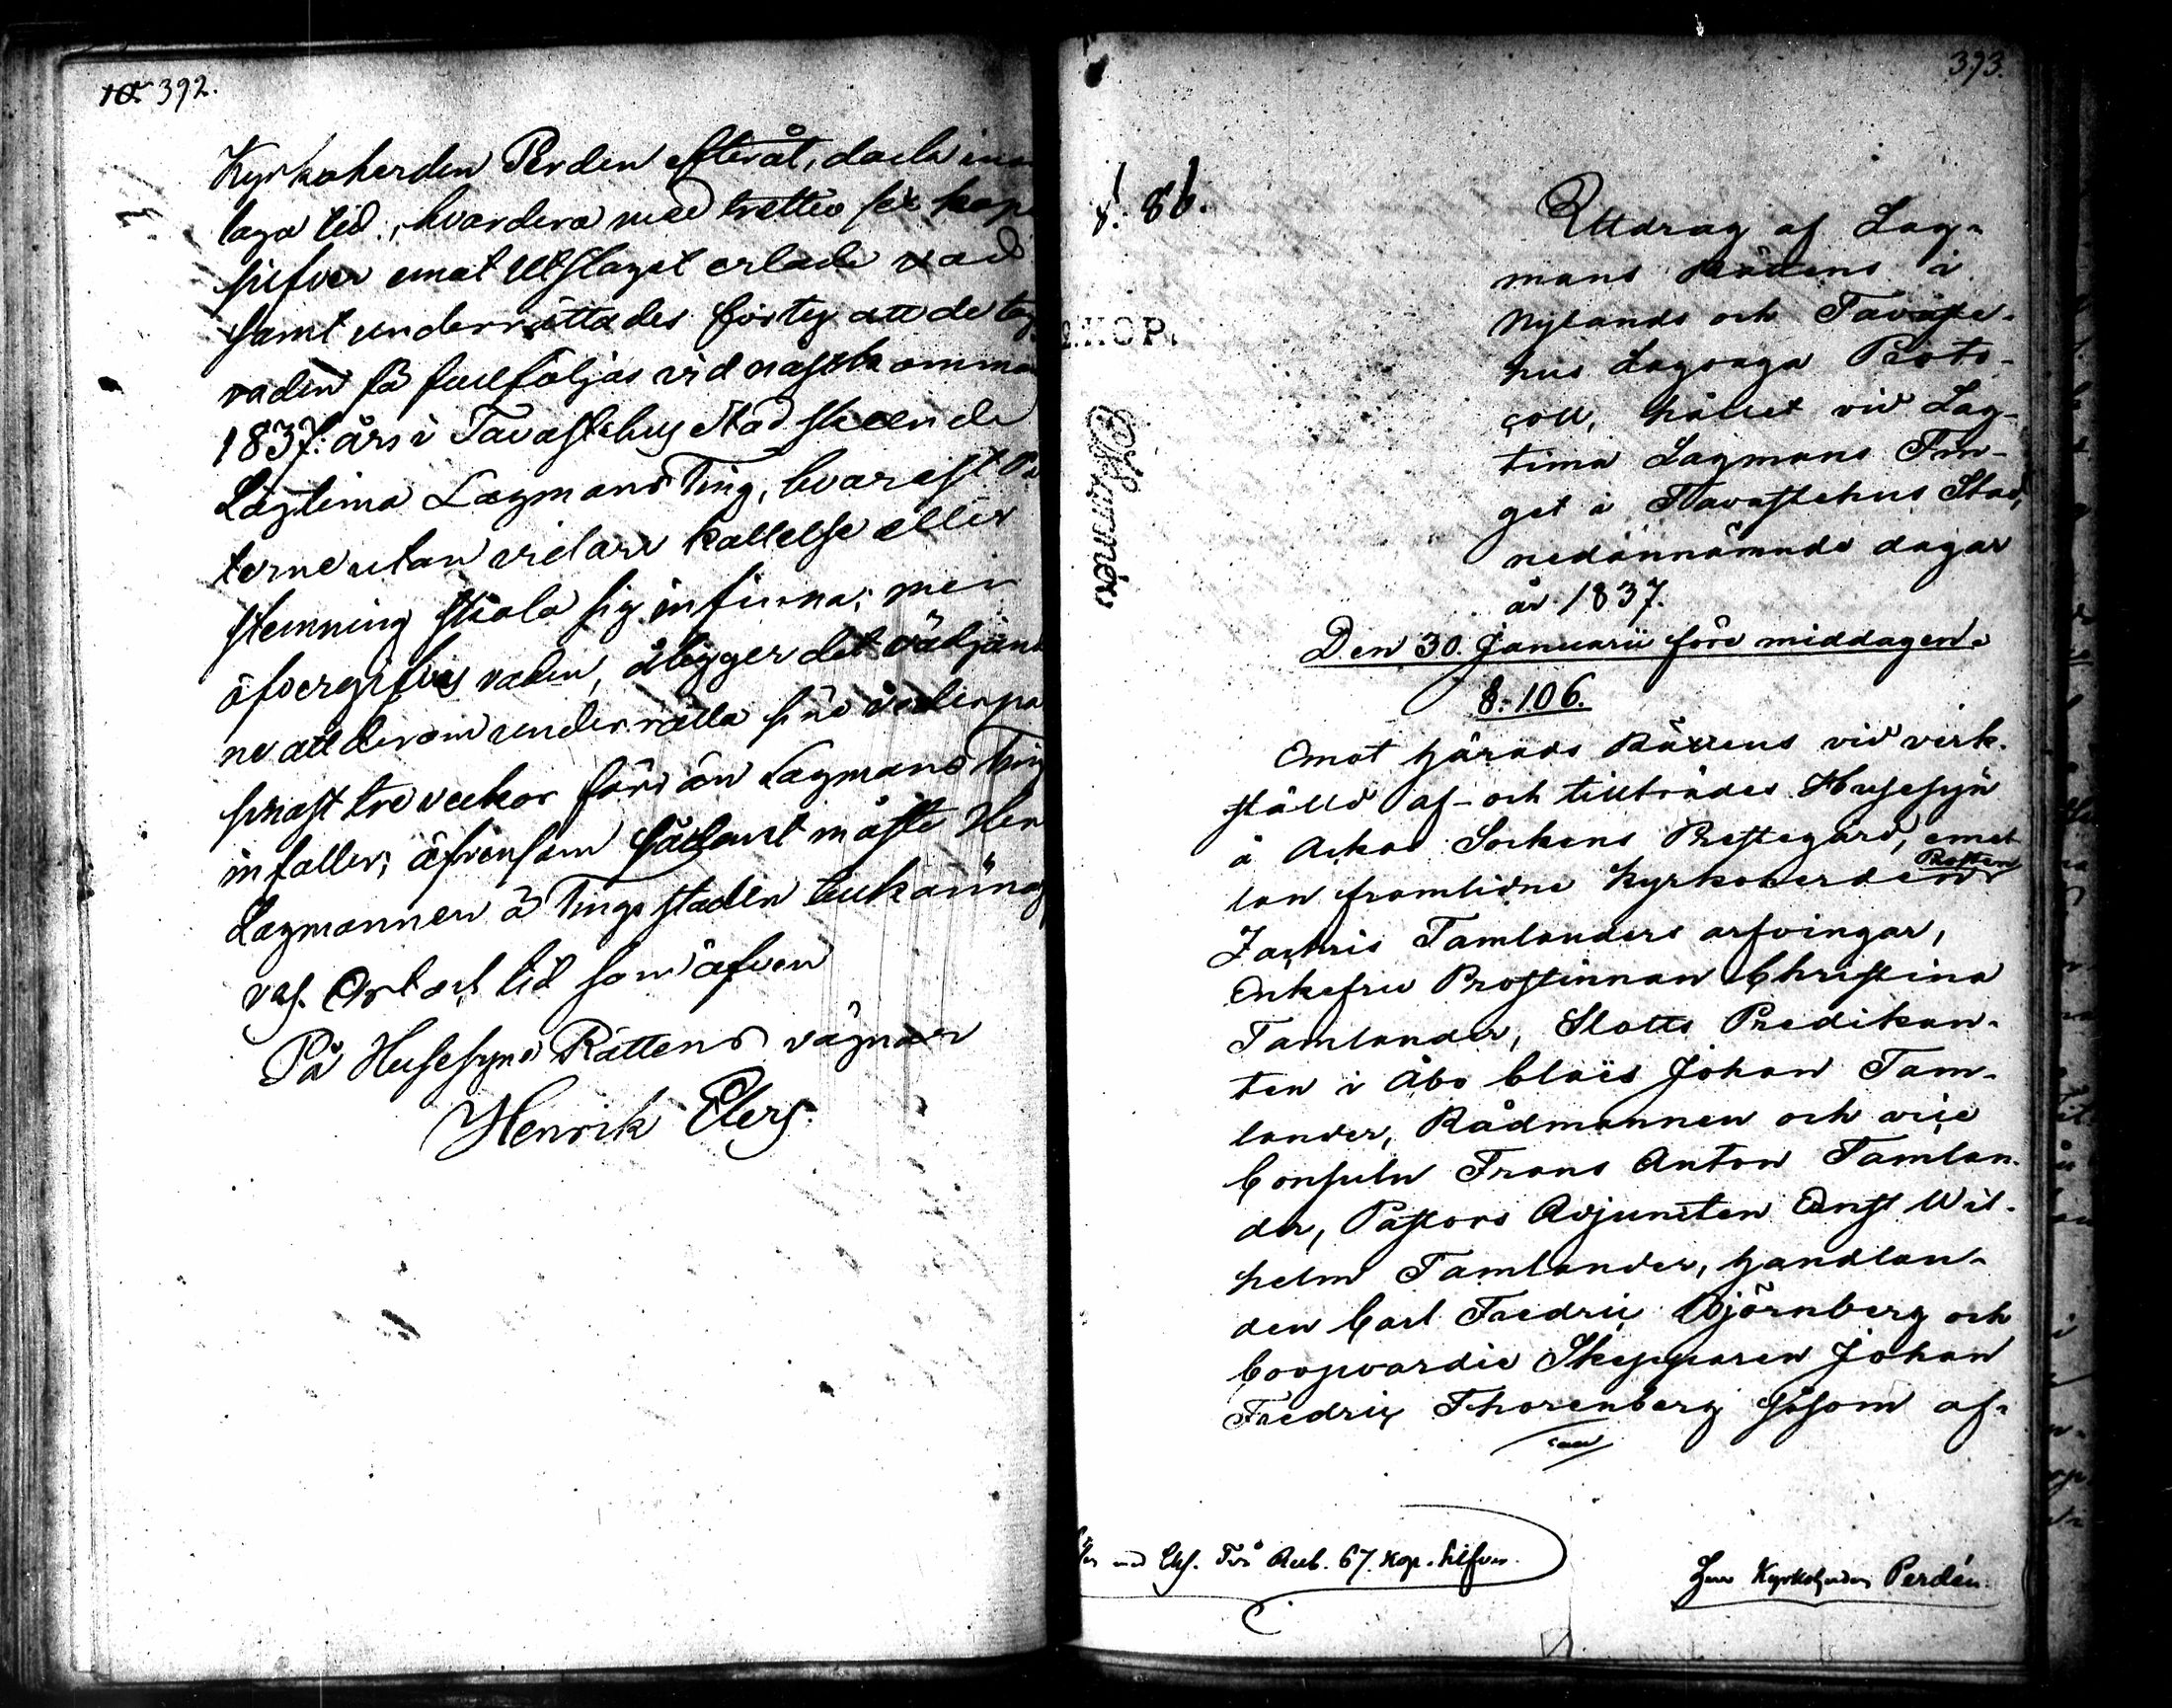 10. 392.
Kyrkoherden Perden efteråt, dock inom
laga tid, hvardera med trettio sex kop
silfver emot Utslaget erlade vad
samt underrättades företeg att de tag
vaden få fullföljas vid nästkomma
1837: års i Tavastehus Stad skeende
Lagtima Lagmans Ting, hvarest Pa
terne utan vidare kallelse eller
stemning skola sig infinna; men
öfvergifves vaden, åligger det vädjan
ne att derom underrätta sine vederpa
sinast tre veckor förr än Lagmans Ting
infaller; äfvensom sådant måste Her
Lagmannen å Tingsstaden tillkännag
vas. Ort och tid som äfven
På Husesyns Rättens vägnar
Henrik Elers.
393.
§. 86.
2. KOP.
Utdrag af Lag-
mans Rättens i
Nylands och Tavaste-
hus Lagsaga Proto-
coll, hållet vid Lag-
tima Lagmans Tin-
get i Tavastehus Stad,
nedannämnde dagar
år 1837.
Den 30. Januarii före middagen.
§. 106.
Emot Härads Rättens vid verk-
ställd af- och tillträdes Husesyn
å Ackas Sockens Prestegård, emel-
lan framlidne Kyrkoherden Prosten
Zachris Tamlanders arfvingar,
Enkefru Prostinnan Christina
Tamlander, Slotts Predikan-
ten i Åbo Claës Johan Tam-
lander, Rådmannen och vice
Consuln Frans Anton Tamlan-
der, Pastors Adjuncten Ernst Wil-
helm Tamlander, Handlan-
den Carl Fredric Björnberg och
Coopvardie Skepparen Johan
Fredric Thorenberg såsom af-
med Chs. Två Rub. 67. Kop. Silfver.
Herr Kyrkoherden Perdén.